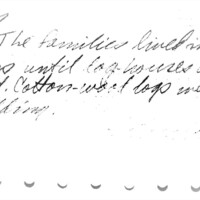 The families lived in
s until log-houses
d. Cotton-wood logs we
lding.